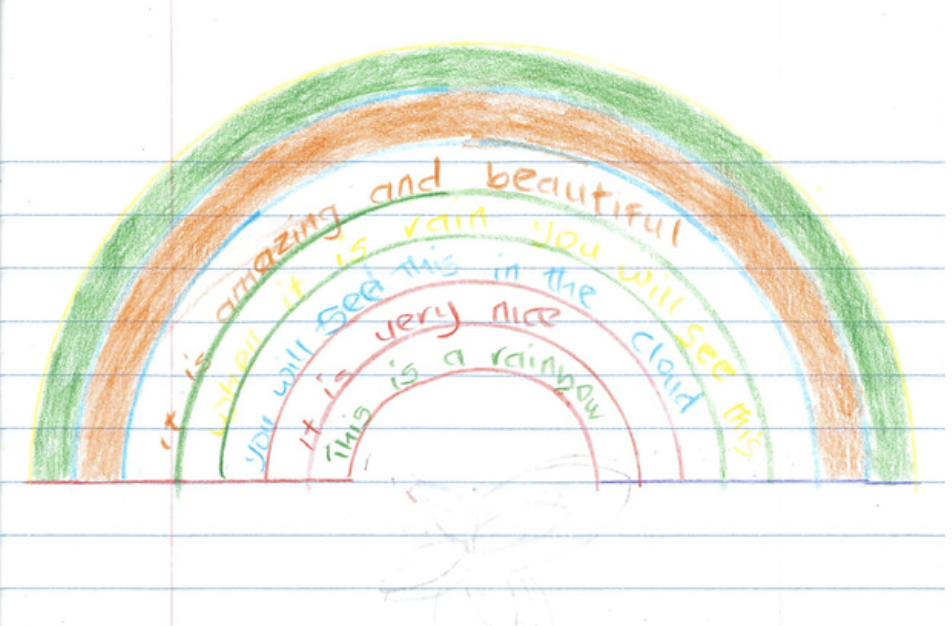 it is amazing and beautiful
when it is rain you will see this
you will see this in the cloud
it is very nice
This is a rainbow